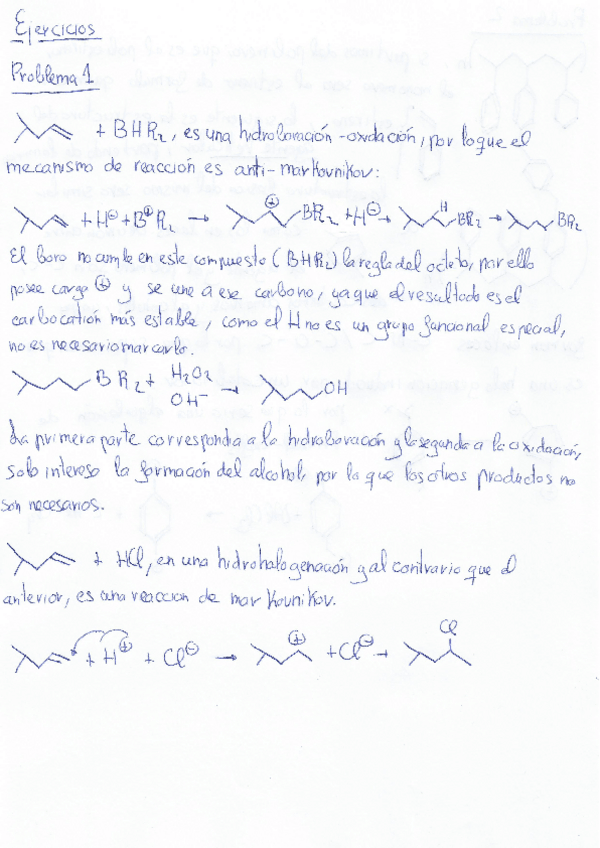 Ejercicios
Problema 1
+ BHR₂, es una hidroboración-oxidación, por lo que el
mecanismo de reacción es anti-markovnikov:
+ H⊖ + B⊕R₂ → ⊕ BR₂ + H⊖ → H BR₂ → BR₂
El boro no cumple en este compuesto (BHR₂) la regla del octeto, por ello
posee carga ⊕ y se une a ese carbono, ya que el resultado es el
carbocatión más estable, como el H no es un grupo funcional especial,
no es necesario marcarlo.
BR₂ + H₂O₂ → OH
OH⁻
La primera parte corresponda a la hidroboración y la segunda a la oxidación,
solo interesa la formación del alcohol, por lo que los otros productos no
son necesarios.
+ HCl, en una hidrohalogenación y al contrario que el
anterior, es una reacción de markovnikov.
+ H⊕ + Cl⊖ → ⊕ + Cl⊖ → Cl